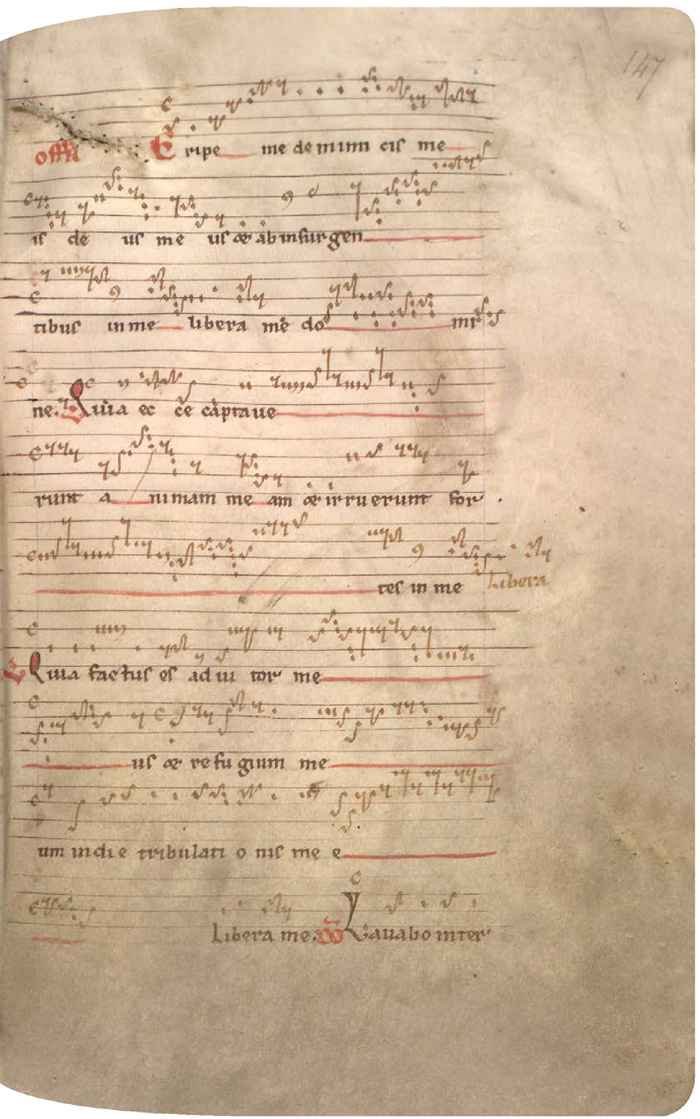 147
offa Eripe me de inimi cis me
is de us me us & ab insurgen
tibus in me libera me do mi
ne. Quia ec ce captaue
runt a nimam me am & irruerunt for
tes in me Libera
V Quia factus es ad iu tor me
us & re fu gium me
um in di e tribulati o nis me e
Libera me. co Lauabo inter